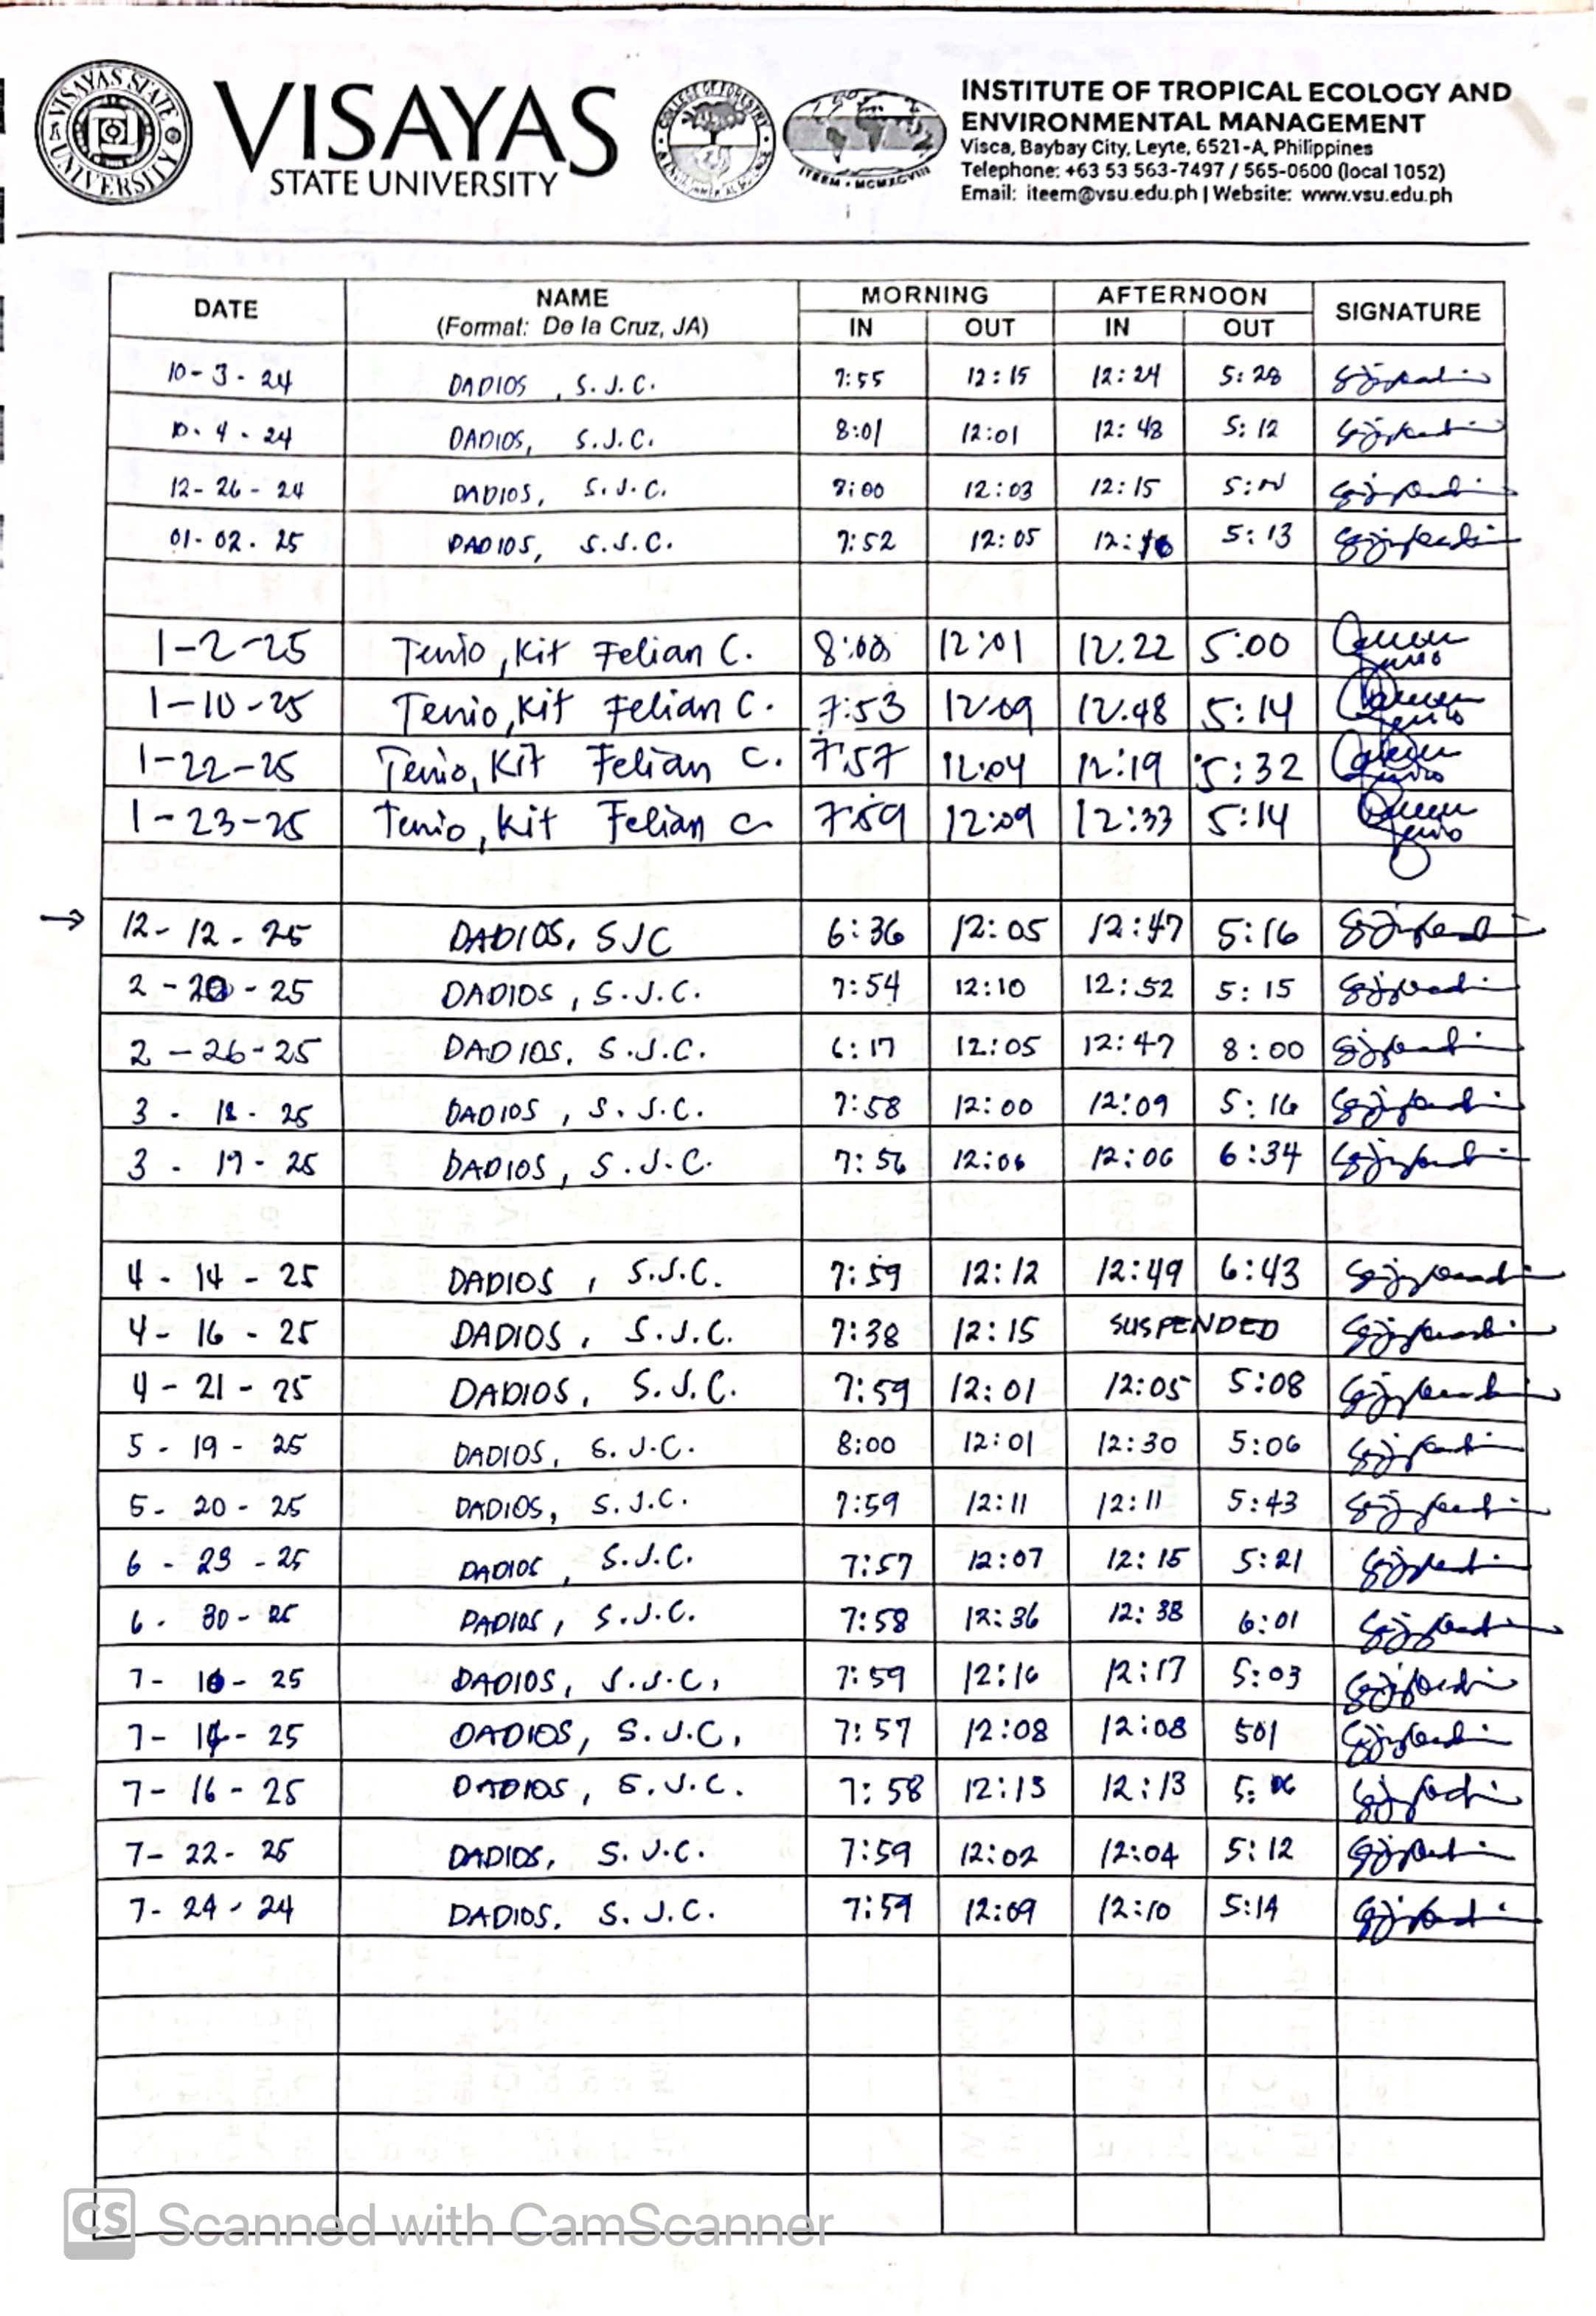 VISAYAS STATE UNIVERSITY
VISAYAS
STATE UNIVERSITY
COLLEGE OF FORESTRY
ITEEM • MCMXCVIII
INSTITUTE OF TROPICAL ECOLOGY AND
ENVIRONMENTAL MANAGEMENT
Visca, Baybay City, Leyte, 6521-A, Philippines
Telephone: +63 53 563-7497 / 565-0600 (local 1052)
Email: iteem@vsu.edu.ph | Website: www.vsu.edu.ph
DATE NAME MORNING AFTERNOON SIGNATURE
(Format: De la Cruz, JA) IN OUT IN OUT
10-3-24 DADIOS, S.J.C. 7:55 12:15 12:24 5:28
10-4-24 DADIOS, S.J.C. 8:01 12:01 12:48 5:12
12-26-24 DADIOS, S.J.C. 12:03 12:15
01-02.25 DADIOS, S.J.C. 7:52 12:05 5:13
1-2-25 Tenio, Kit Felian C. 8:00 12:01 12:22 5:00
1-10-25 Tenio, Kit Felian C. 7:53 12:09 12:48 5:14
1-22-25 Tenio, Kit Felian C. 7:57 12:04 12:19 5:32
1-23-25 Tenio, Kit Felian C. 7:59 12:09 12:33 5:14
→ 12-12-25 DADIOS, SJC 6:36 12:05 12:47 5:16
2-20-25 DADIOS, S.J.C. 7:54 12:10 12:52 5:15
2-26-25 DADIOS, S.J.C. 6:17 12:05 12:47 8:00
3-18-25 DADIOS, S.J.C. 7:58 12:00 12:09 5:16
3-19-25 DADIOS, S.J.C. 7:56 12:06 12:06 6:34
4-14-25 DADIOS, S.J.C. 7:59 12:12 12:49 6:43
4-16-25 DADIOS, S.J.C. 7:38 12:15 SUSPENDED
4-21-25 DADIOS, S.J.C. 7:59 12:01 12:05 5:08
5-19-25 DADIOS, S.J.C. 8:00 12:01 12:30 5:06
5-20-25 DADIOS, S.J.C. 7:59 12:11 12:11 5:43
6-23-25 DADIOS, S.J.C. 7:57 12:07 12:15 5:21
6-30-25 DADIOS, S.J.C. 7:58 12:36 12:38 6:01
7-10-25 DADIOS, S.J.C, 7:59 12:16 12:17 5:03
7-14-25 DADIOS, S.J.C, 7:57 12:08 12:08 501
7-16-25 DADIOS, S.J.C. 7:58 12:13 12:13 5:06
7-22-25 DADIOS, S.J.C. 7:59 12:02 12:04 5:12
7-24-24 DADIOS. S.J.C. 7:59 12:09 12:10 5:14
CS Scanned with CamScanner